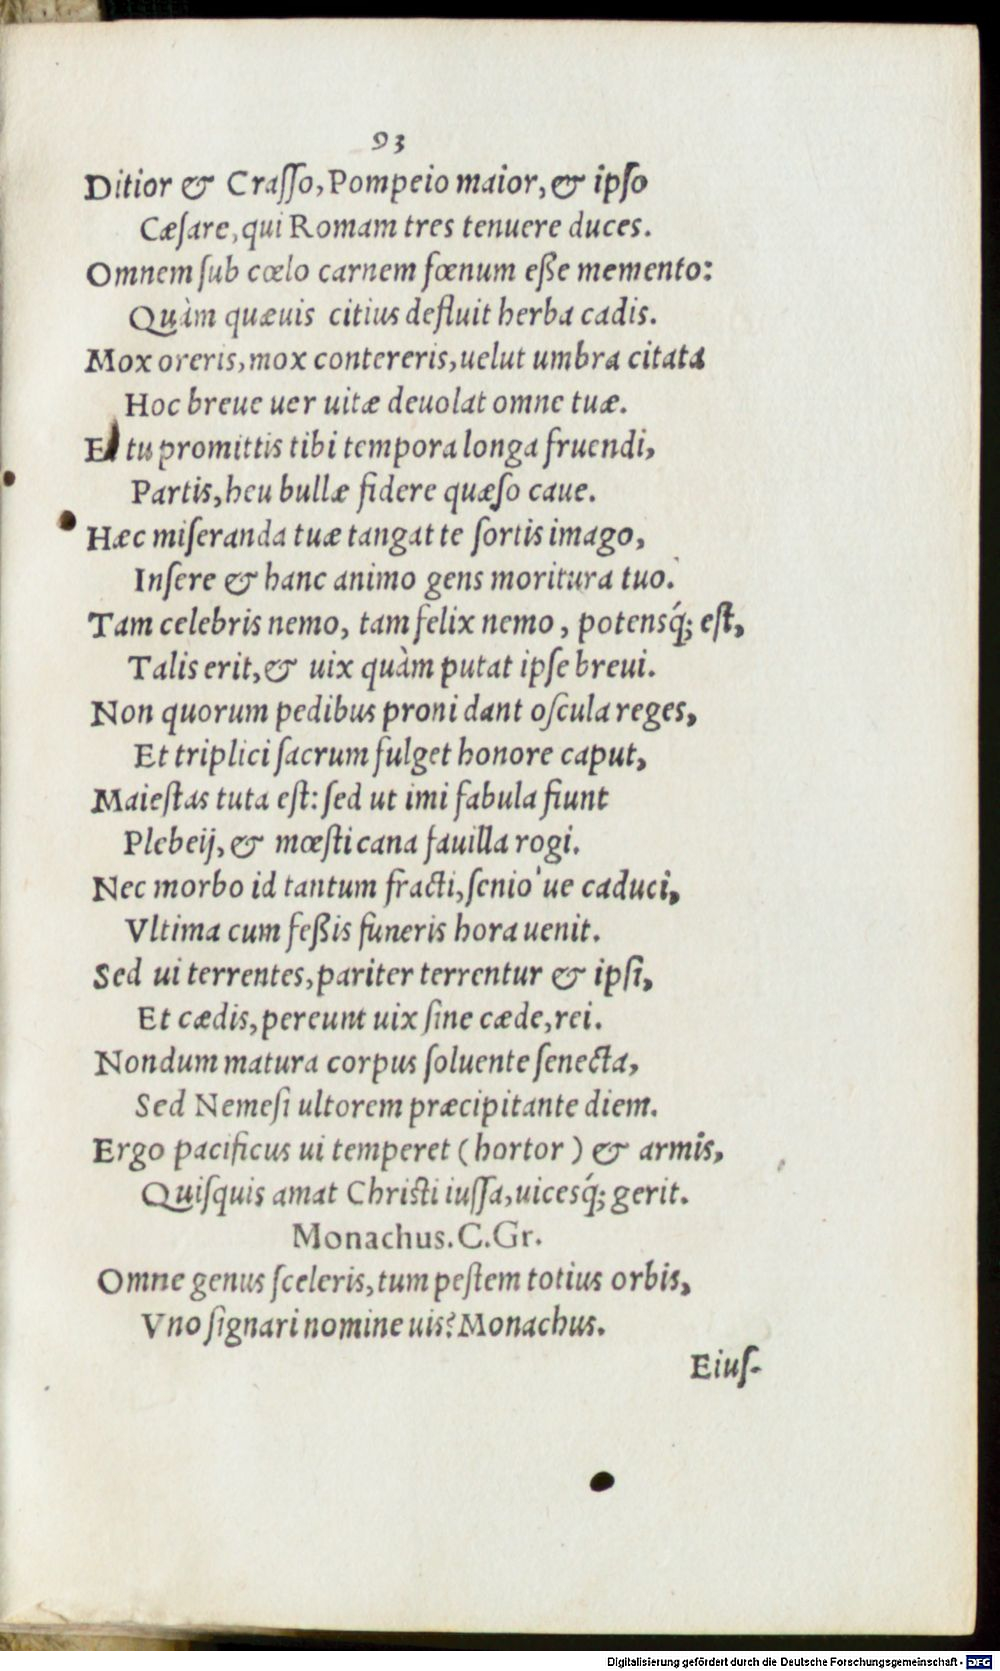 93
Ditior & Craſſo, Pompeio maior, & ipſo
Cæſare, qui Romam tres tenuere duces.
Omnem ſub cœlo carnem fœnum eße memento:
Quàm quæuis citius defluit herba cadis.
Mox oreris, mox contereris, uelut umbra citata
Hoc breue uer uitæ deuolat omne tuæ.
Et tu promittis tibi tempora longa fruendi,
Partis, heu bullæ fidere quæſo caue.
Hæc miſeranda tuæ tangat te ſortis imago,
Inſere & hanc animo gens moritura tuo.
Tam celebris nemo, tam felix nemo, potensq́; eſt,
Talis erit, & uix quàm putat ipſe breui.
Non quorum pedibus proni dant oſcula reges,
Et triplici ſacrum fulget honore caput,
Maieſtas tuta eſt: ſed ut imi fabula fiunt
Plebeij, & mœſti cana fauilla rogi.
Nec morbo id tantum fracti, ſenio'ue caduci,
Vltima cum feßis funeris hora uenit.
Sed ui terrentes, pariter terrentur & ipſi,
Et cædis, pereunt uix ſine cæde, rei.
Nondum matura corpus ſoluente ſenecta,
Sed Nemeſi ultorem præcipitante diem.
Ergo pacificus ui temperet (hortor) & armis,
Quiſquis amat Chriſti iuſſa, uicesq́; gerit.
Monachus. C. Gr.
Omne genus ſceleris, tum peſtem totius orbis,
Vno ſignari nomine uis? Monachus.
Eiuſ-
Digitalisierung gefördert durch die Deutsche Forschungsgemeinschaft - DFG